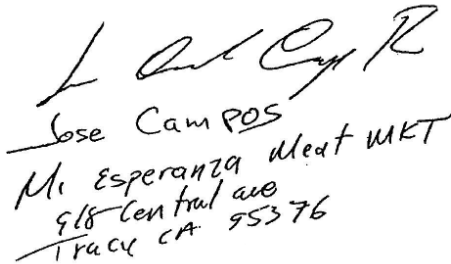 Jose Campos
Mi Esperanza Meat MKT
918 Central ave
Tracy CA 95376